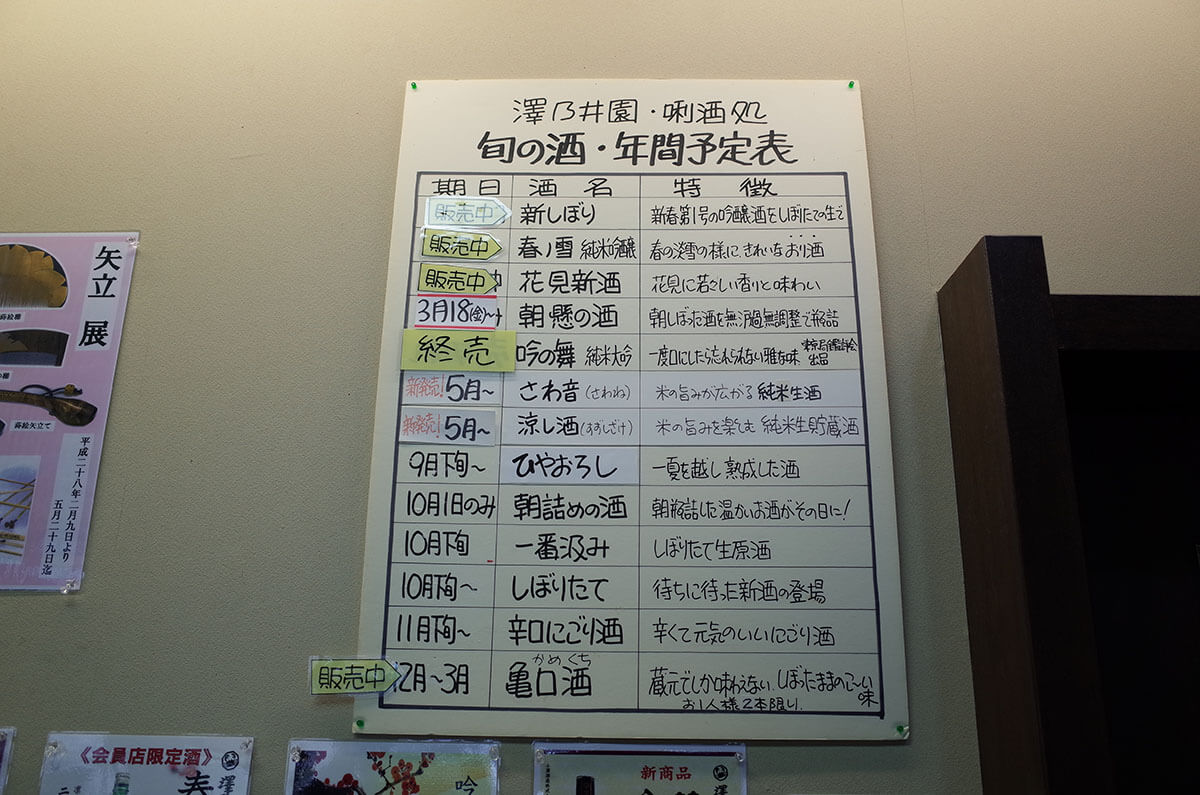 澤乃井園・唎酒処
旬の酒・年間予定表
期日 酒名 特徴
販売中 新しぼり 新春第1号の吟醸酒をしぼりたての生で
販売中 春ノ雪 純米吟醸 春の淡雪の様に、きれいなおり酒
販売中 花見新酒 花見に若々しい香りと味わい
3月18(金)~ 朝懸の酒 朝しぼった酒を無濾過無調整で瓶詰
終売 吟の舞 純米大吟 一度口にしたら忘れられない雅な味 出品
新発売! 5月~ さわ音(さわね) 米の旨みが広がる 純米生酒
新発売! 5月~ 涼し酒(すずしざけ) 米の旨みを楽しむ 純米生貯蔵酒
9月下旬~ ひやおろし 一夏を越し熟成した酒
10月1日のみ 朝詰めの酒 朝瓶詰した温かいお酒がその日に!
10月下旬 一番汲み しぼりたて生原酒
10月下旬~ しぼりたて 待ちに待った新酒の登場
11月下旬~ 辛口にごり酒 辛くて元気のいいにごり酒
かめくち
販売中 12月~3月 亀口酒 蔵元でしか味わえない、しぼったままのこ~い味
お1人様2本限り.
矢立展
蒔絵櫛
蒔絵矢立て
平成二十八年二月九日より
五月二十九日迄
《会員店限定酒》
澤
春
吟
新商品